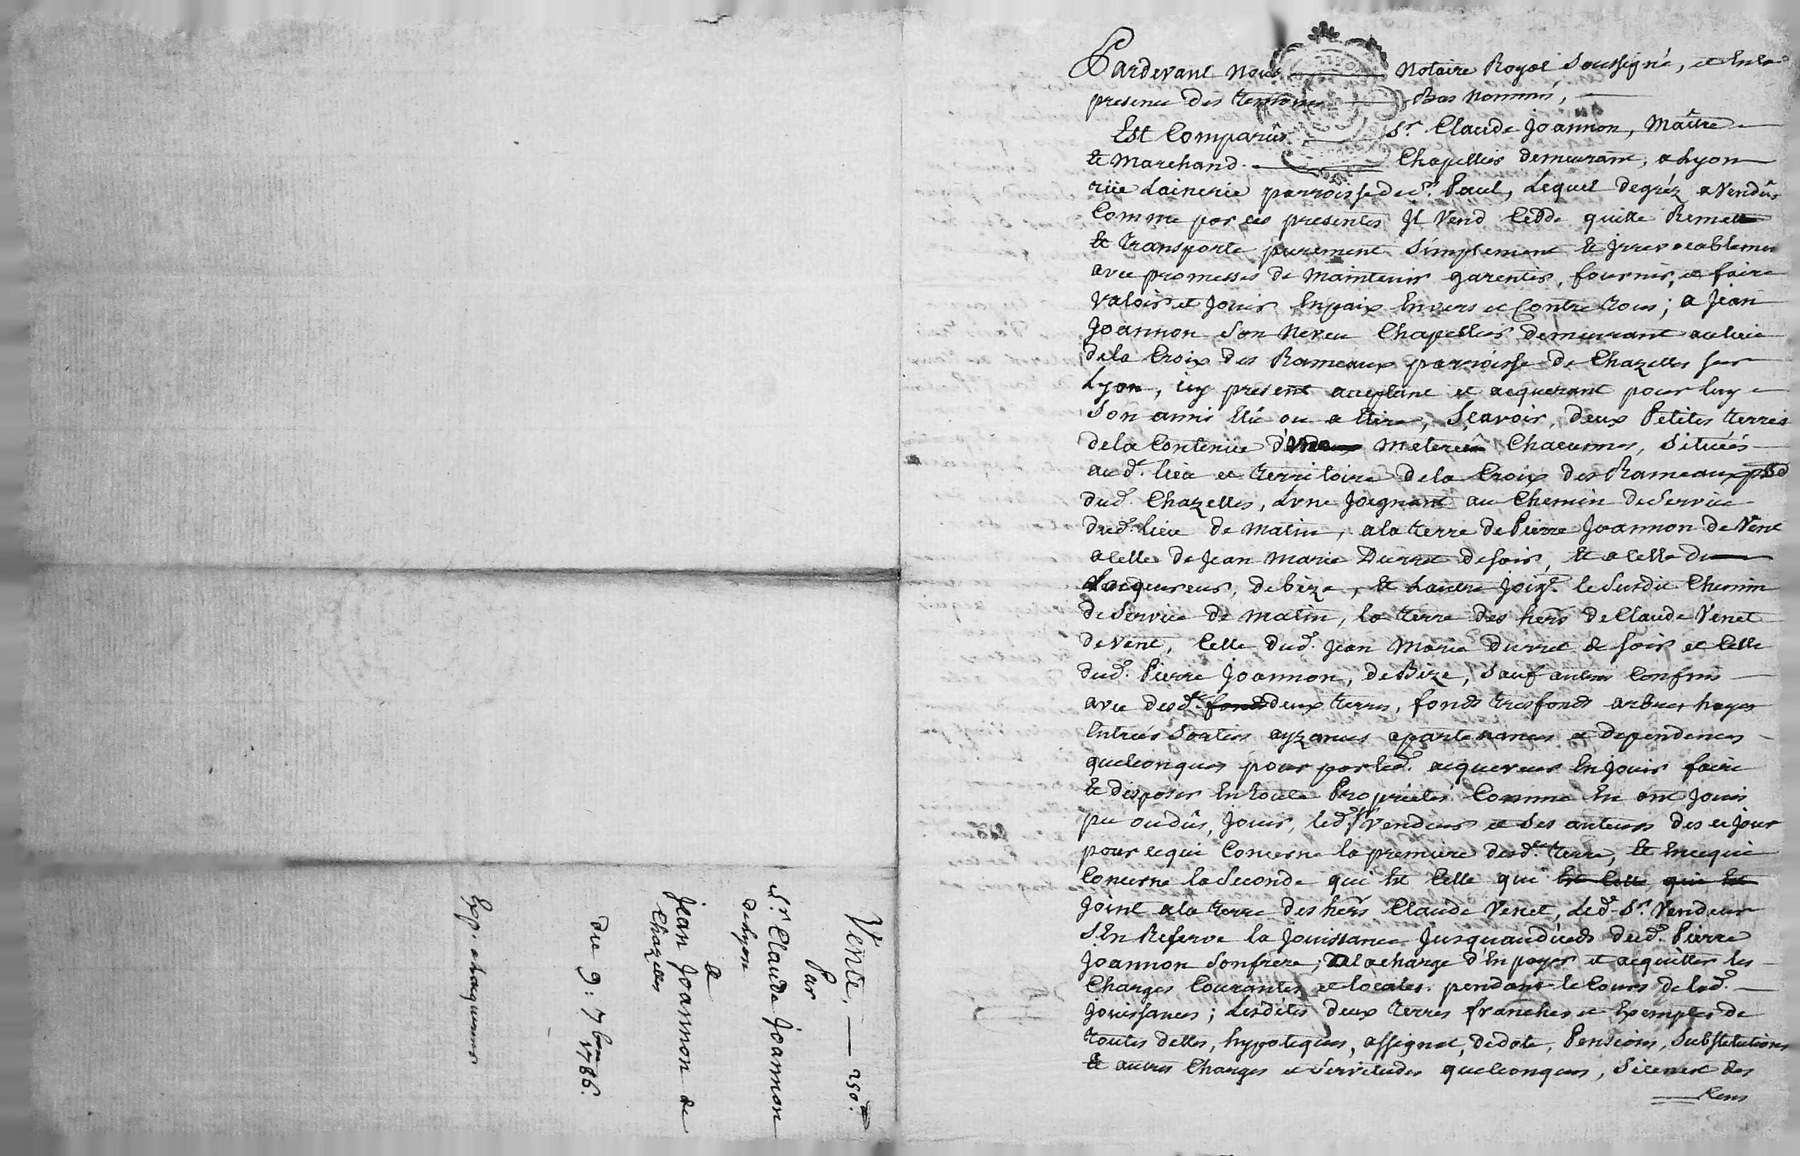 Vente, — 250.tt
Par
Sr. Claude Joannon
de Lyon
a
Jean Joannon de
Chazelles
Du 9: 7bre 1786.
Exp. a chaqu'une
Pardevant Nous Notaire Royal Soussigné, et En la
presence des temoins Bas Nommés,
Est Comparû Sr. Claude Joannon, Maître
et Marchand Chapellier demeurant, a Lyon
rüe Lainerie parroisse de St. Paul, Lequel de gréz a Vendû
Comme par ces presentes Il Vend Cedde quitte Remet
et transporte purement Simplement et irrevocablement
avec promesses de Maintenir garentir, fournir, et faire
Valoir et Jouir En paix Envers et Contre tous; a Jean
Joannon Son Neveu Chapellier demeurant au lieu
de la Croix des Rameaux parroisse de Chazelles sur
Lyon, icy present acceptant et acquerant pour luy
Son ami Elû ou a Elire, Sçavoir, deux Petites terres
de la Contenüe Meterée Chacunes, Situées
au d. lieu et territoire de la Croix des Rameaux psse
dud. Chazelles, L'une Joignant au Chemin de Service
dud. lieu de Matin, a la terre de Pierre Joannon de Vent
a Celle de Jean Marie Durret de soir, Et a Celle du
acquereur, de bize, Et L'autre Joigt. le Susdit Chemin
de Service de Matin, la terre des hers. de Claude Venet
de Vent, Celle dud. Jean Marie Durret de soir et Celle
dud. Pierre Joannon, de Bize, Sauf autres Confins
avec desd. fonds deux terres, fonds tresfonds arbres hayes
Entrées Sorties ayzances apartenances et dependences
quelconques pour par led. acquereur En Jouir faire
Et disposer En toute Propriété Comme En ont Joui
pu ou dû, Jouir, led. Vendeur et Ses auteurs des ce Jour
pour ce qui Concerne la premiere desd. terre, Et En ce qui
Concerne la Seconde qui Est Celle qui Est Celle qui Est
Joint a la terre des hers. Claude Venet, Led. Sr. Vendeur
S'En Reserve la Jouissance Jusqu'au décéds dud. Pierre
Joannon Son frere; a la charge d'En payer et acquitter les
Charges Courantes et locales. pendant le Cours de lad.
Jouissance; Lesdites deux terres franches et Exemptes de
toutes dettes, hypoteques, assignat, de dote, Pensions, Substitutions
Et autres Charges et Servitudes quelconques, Si ce n'est des
Cens